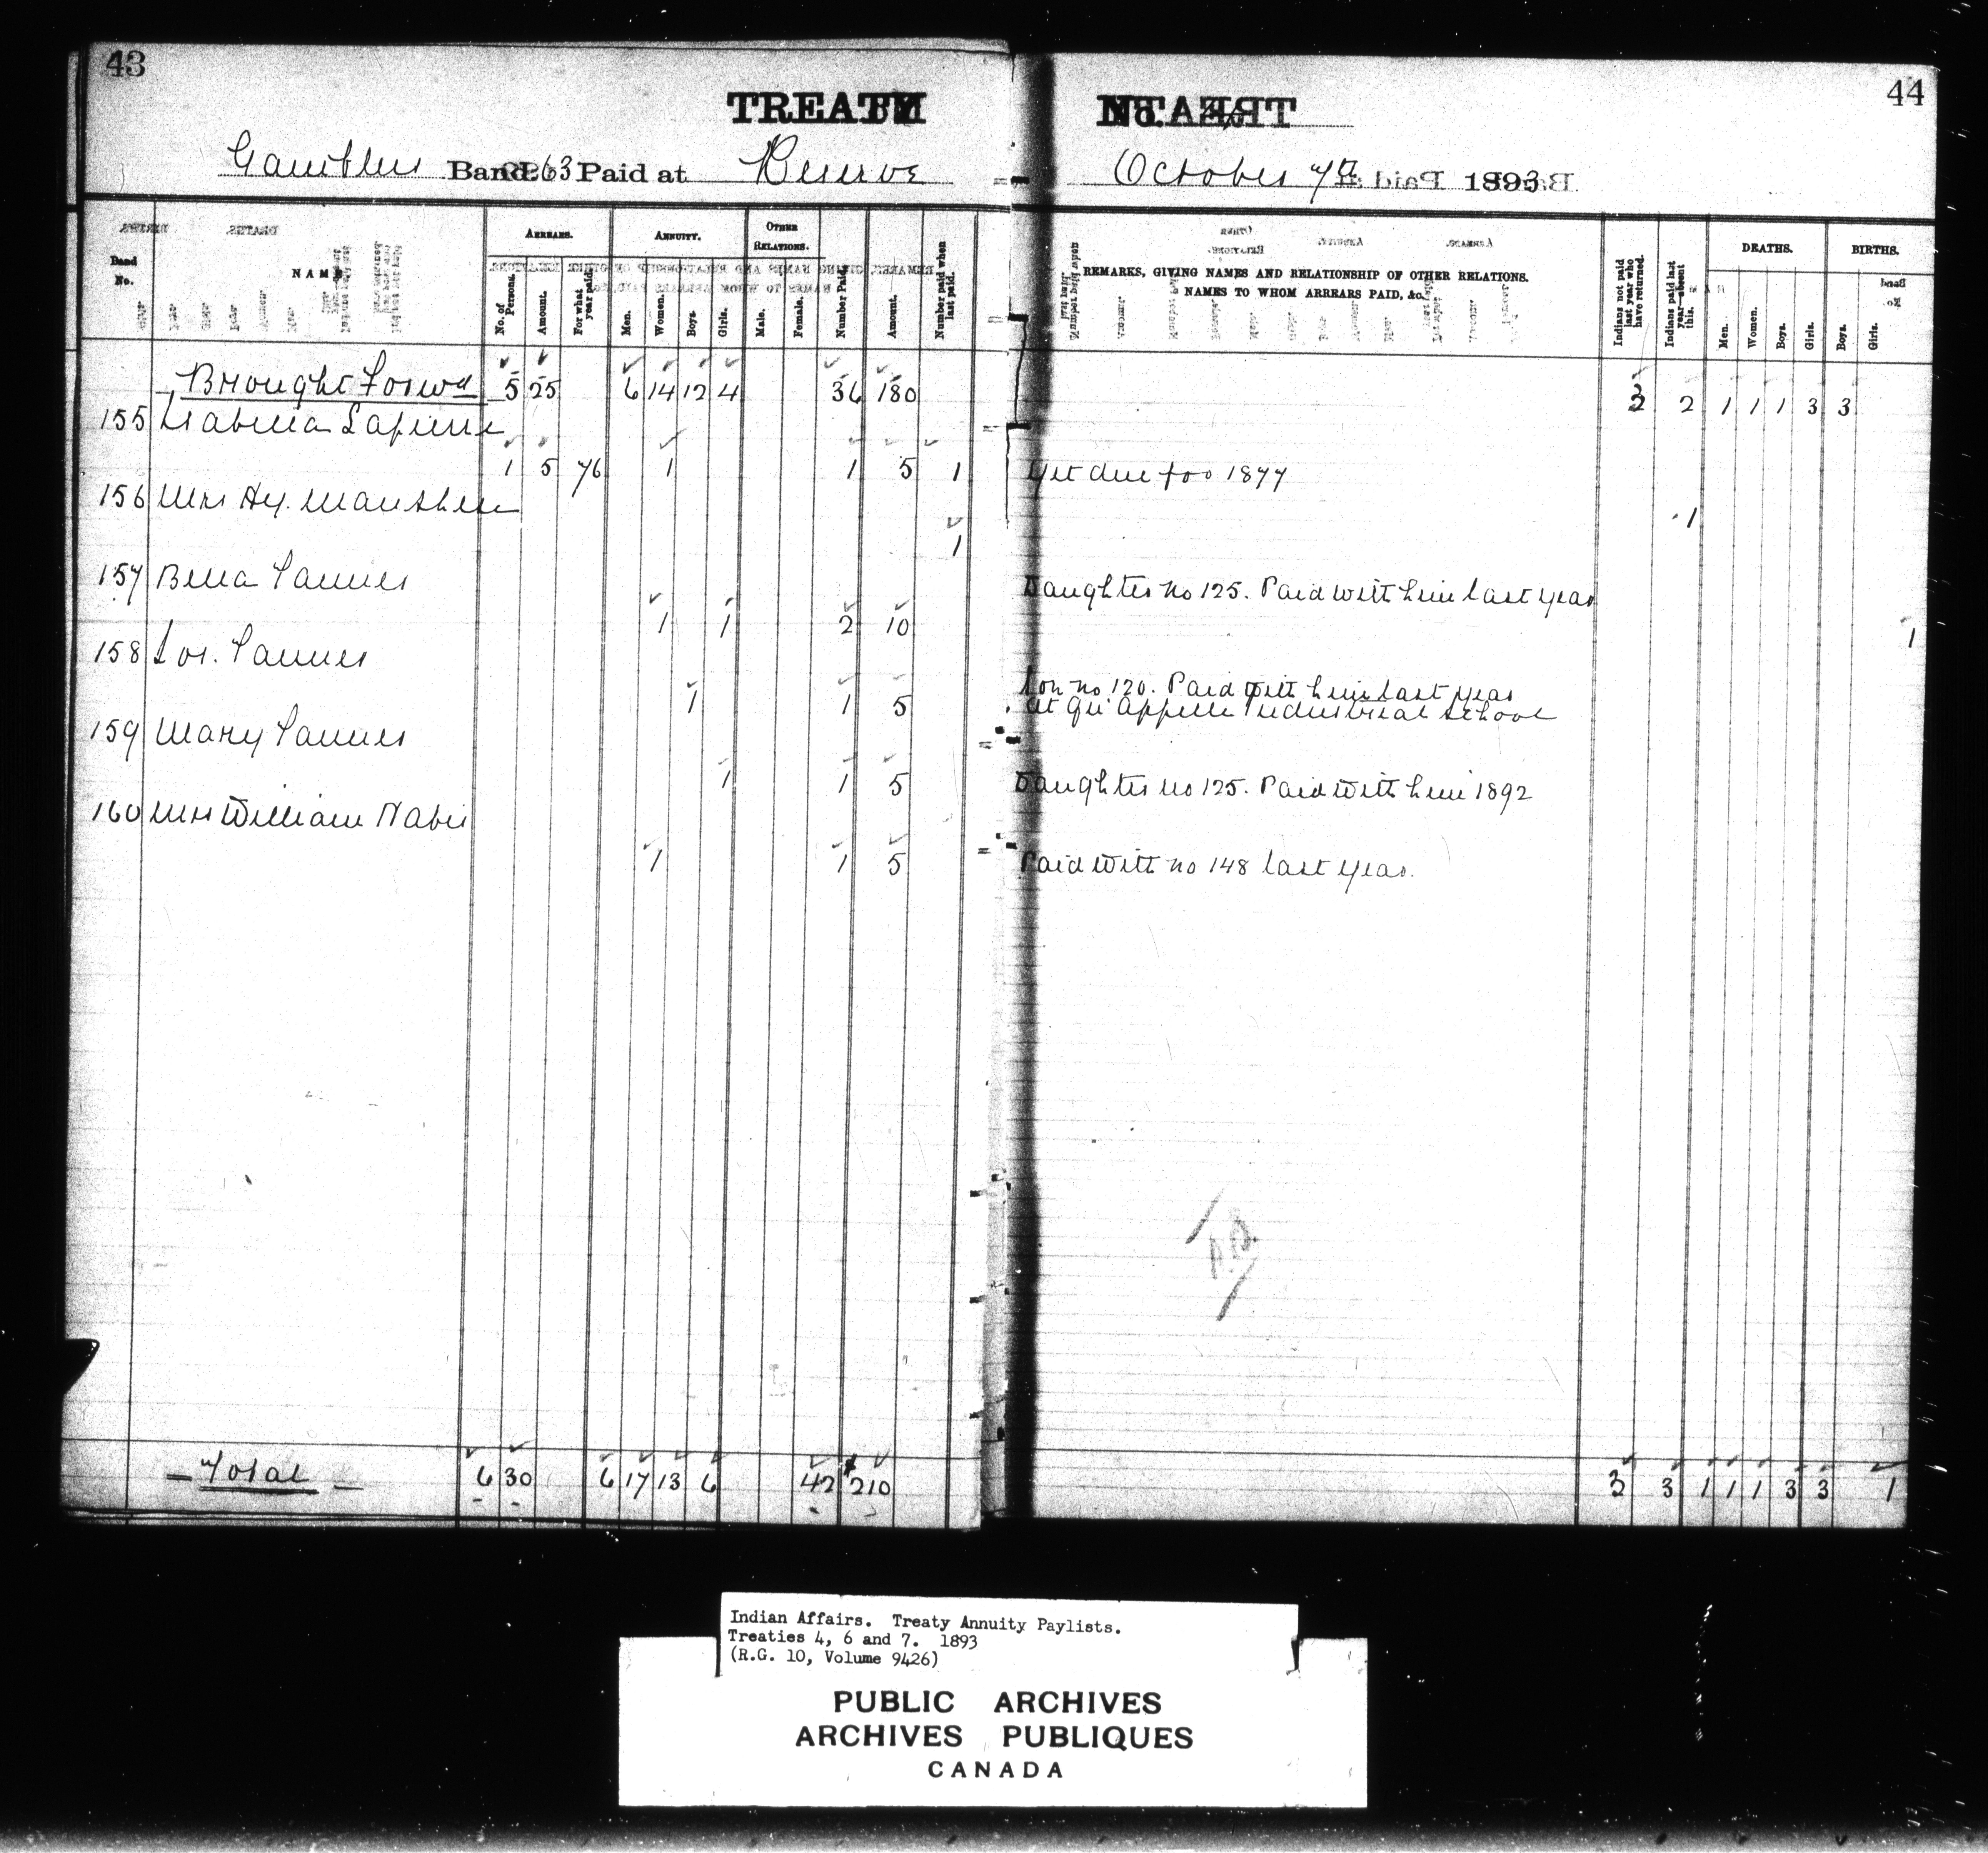 43
TREATY
Gamblers Band No. 63 Paid at Reserve
Band No.
NAME
ARREARS.
No. of Persons.
Amount.
For what year paid.
ANNUITY.
Men.
Women.
Boys.
Girls.
OTHER RELATIONS.
Male.
Female.
Number Paid.
Amount.
Number paid when last paid.
Brought Forwd 5 25 6 14 12 4 36 180
155 Isabella Lapierre
1 5 76 1 1 5 1
156 Mrs Hy.
1
157 Bella Tanner
1 1 2 10
158 Jos. Tanner
1 1 5
159 Mary Tanner
1 1 5
160 Mrs William Nabis
1 1 5
Total 6 30 6 17 13 6 42 $210
44
No. 4
October 7th 1893
REMARKS, GIVING NAMES AND RELATIONSHIP OF OTHER RELATIONS.
NAMES TO WHOM ARREARS PAID, &c.
Indians not paid last year who have returned.
Indians paid last year—absent this.
DEATHS.
Men.
Women.
Boys.
Girls.
BIRTHS.
Boys.
Girls.
2 2 1 1 1 3 3
Yet due for 1877
1
Daughter no 125. Paid with him last year
1
Son no 120. Paid with him last year
at Qu'Appelle Industrial School
Daughter no 125. Paid with him 1892
Paid with no 148 last year.
2 3 1 1 1 3 3 1
Indian Affairs. Treaty Annuity Paylists.
Treaties 4, 6 and 7. 1893
(R.G. 10, Volume 9426)
PUBLIC ARCHIVES
ARCHIVES PUBLIQUES
CANADA